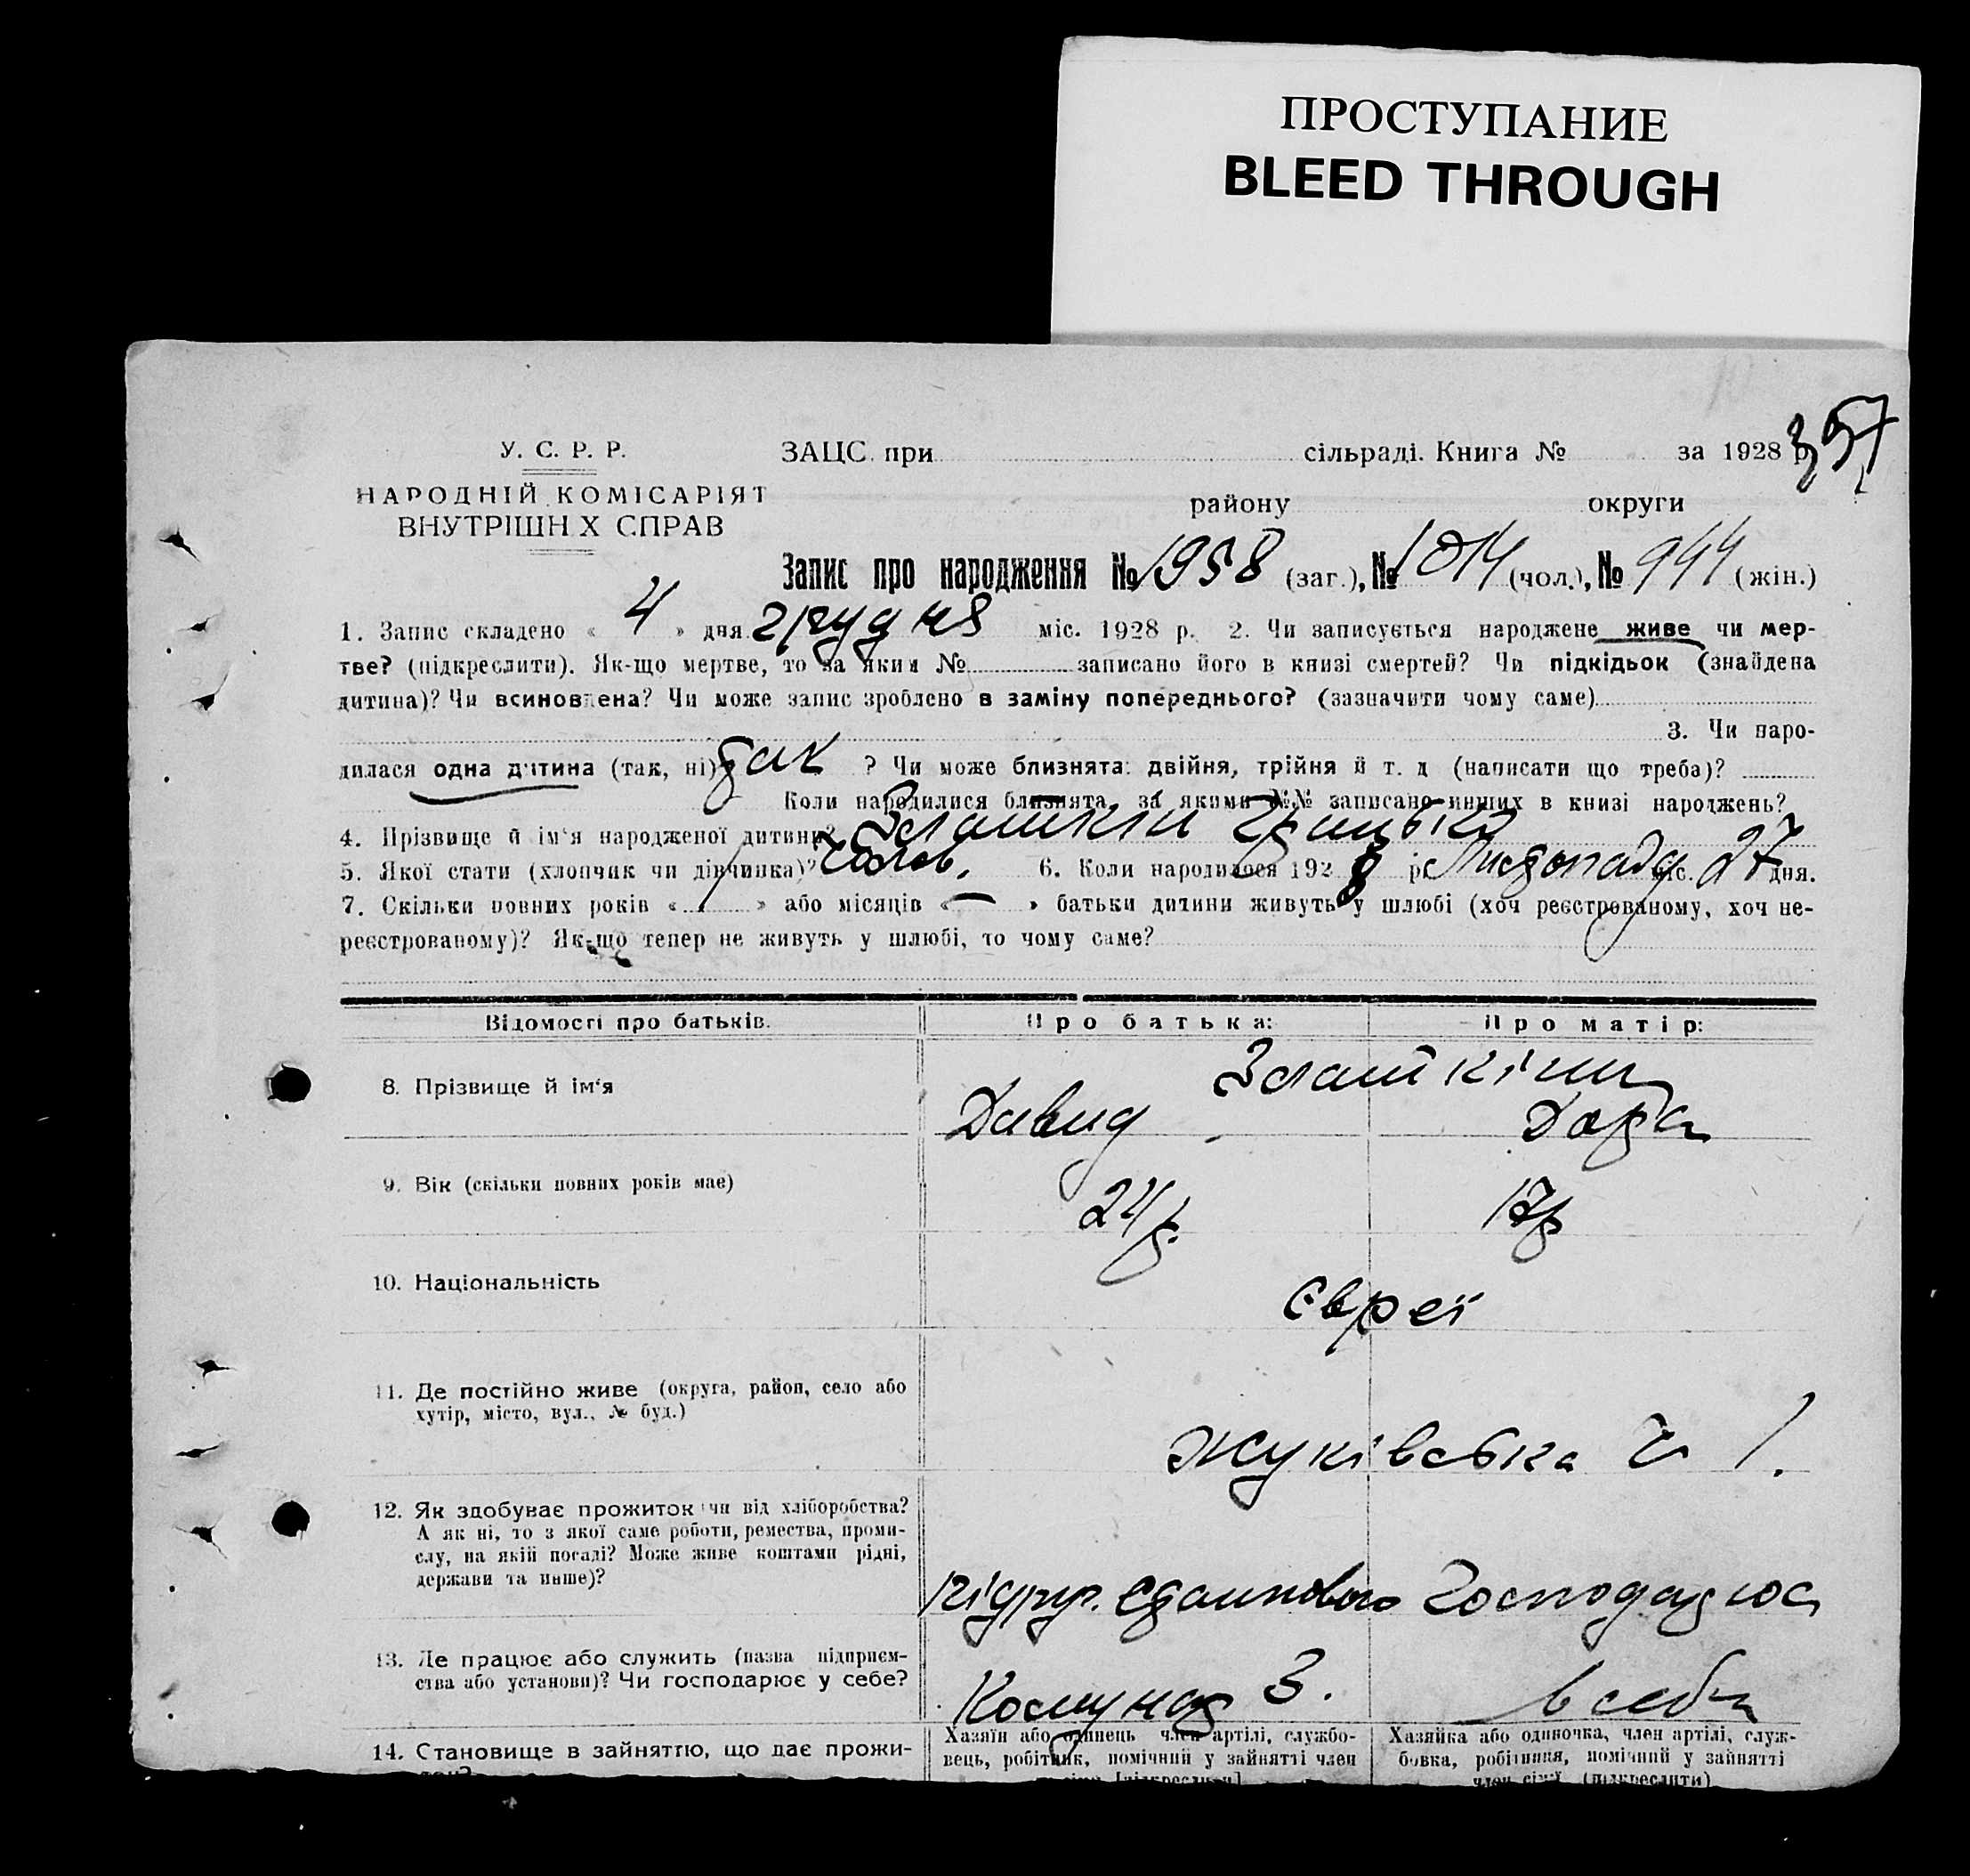 ПРОСТУПАНИЕ
BLEED THROUGH
357
У. С. Р. Р.
ЗАЦС при сільраді. Книга № за 1928 р.
НАРОДНІЙ КОМІСАРІЯТ
району округи
ВНУТРІШН Х СПРАВ
Запис про народження № 1958 (заг.), № 1014 (чол.), № 944 (жін.)
1. Запис складено « 4 » дня грудня міс. 1928 р. 2. Чи записується народжене живе чи мер-
тве? (підкреслити). Як-що мертве, то за яким № записано його в книзі смертей? Чи підкідьок (знайдена
дитина)? Чи всиновлена? Чи може запис зроблено в заміну попереднього? (зазначити чому саме)
3. Чи наро-
дилася одна дитина (так, ні) так ? Чи може близнята: двійня, трійня й т. д (написати що треба)?
Коли народилися близнята, за якими №№ записано инших в книзі народжень?
4. Прізвище й ім‘я народженої дитини? Златкін
5. Якої стати (хлопчик чи дівчинка)? чолов. 6. Коли народилося 1928 р. Листопада міс. 27 дня.
7. Скільки повних років « 1 » або місяців « — » батьки дитини живуть у шлюбі (хоч реєстрованому, хоч не-
реєстрованому)? Як-що тепер не живуть у шлюбі, то чому саме?
Відомості про батьків. Про батька: Про матір:
Златкіни
8. Прізвище й ім‘я Давид Дора
9. Вік (скільки повних років має) 24 р. 17 р
10. Національність Євреї
11. Де постійно живе (округа, район, село або
хутір, місто, вул., № буд.)
Жуківська 1.
12. Як здобуває прожиток чи від хліборобства?
А як ні, то з якої саме роботи, ремества, проми-
слу, на якій посаді? Може живе коштами рідні,
держави та инше)?
Господарює
13. Де працює або служить (назва підприєм-
ства або установи)? Чи господарює у себе?
Комунар 3. в себе
14. Становище в зайняттю, що дає прожи-
Хазяїн або одинець член артілі, службо-
вець, робітник, помічний у зайнятті член
Хазяйка або одиночка, член артілі, служ-
бовка, робітниця, помічний у зайнятті
член сім‘ї (підкреслити)